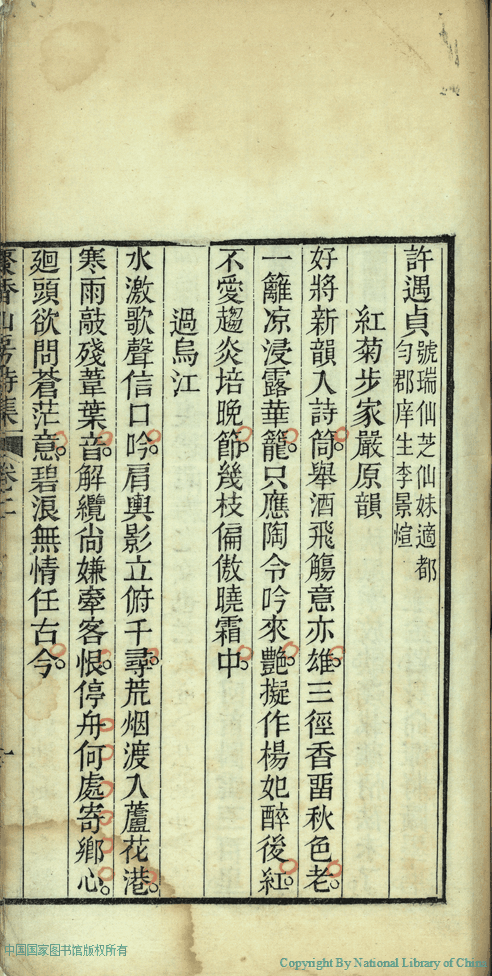 許遇貞 號瑞仙芝仙妹適都
勻郡庠生李景煊
紅菊步家嚴原韻
好將新韻入詩筒。舉酒飛觴意亦雄。三徑香畱秋色老。
一籬凉浸露華籠。只應陶令吟來艷。擬作楊妃醉後紅。
不愛趨炎培晚節。幾枝偏傲曉霜中。
過烏江
水激歌聲信口吟。肩輿影立俯千尋。荒烟渡入蘆花港。
寒雨敲殘葦葉音。解纜尙嫌牽客恨。停舟何處寄鄉心。
廻頭欲問蒼茫意。碧浪無情任古今。
香仙房詩集 卷十二
中国国家图书馆版权所有
Copyright By National Library of China